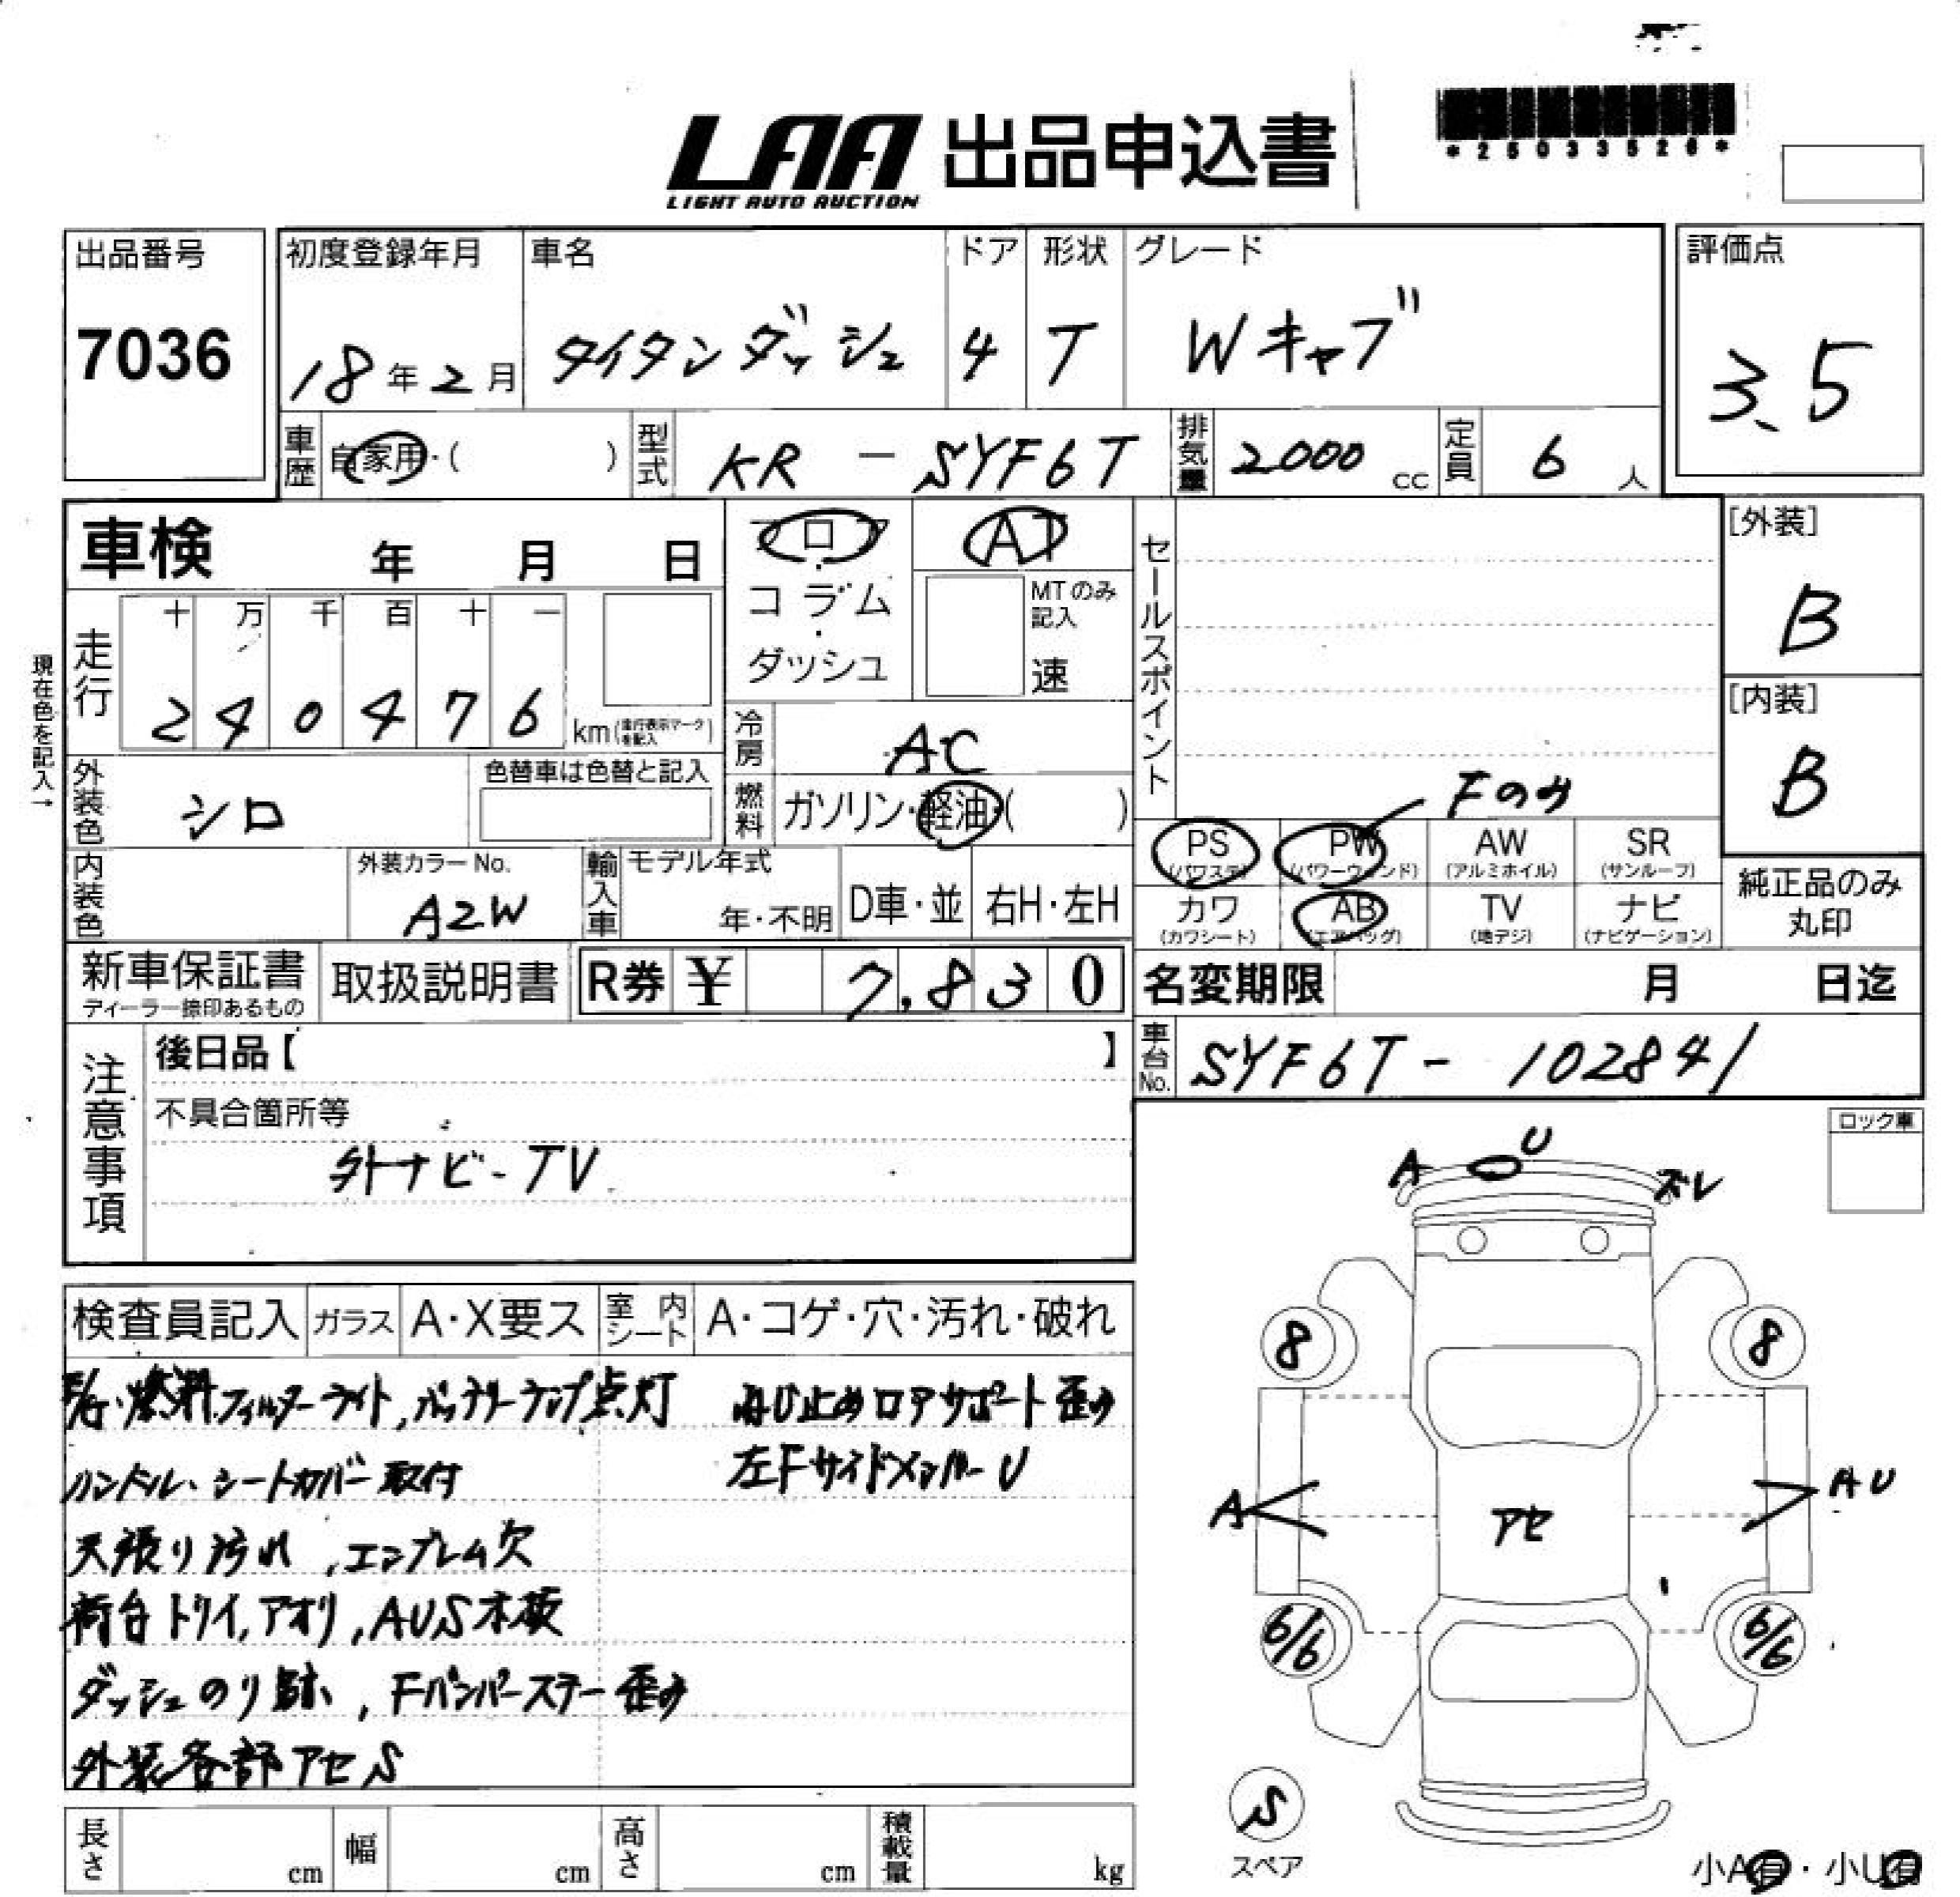 LAA 出品申込書
LIGHT AUTO AUCTION
*25033526*
出品番号 初度登録年月 車名 ドア 形状 グレード 評価点
7036 18年2月 タイタンダッシュ 4 T Wキャブ 3.5
車歴 自家用・( ) 型式 KR-SYF6T 排気量 2000cc 定員 6人
車検 年 月 日 フロア・コラム・ダッシュ AT
MTのみ記入 速
セールスポイント
[外装] B
現在色を記入→
走行 十 万 千 百 十 一
2 4 0 4 7 6 km(走行表示マークを記入)
冷房 AC
[内装] B
外装色 シロ 色替車は色替と記入
燃料 ガソリン・軽油・( )
Fのみ
PS PW AW SR
(パワステ) (パワーウィンド) (アルミホイル) (サンルーフ)
カワ AB TV ナビ
(カワシート) (エアバッグ) (地デジ) (ナビゲーション)
純正品のみ丸印
内装色 外装カラーNo. A2W 輸入車 モデル年式 年・不明 D車・並 右H・左H
新車保証書 取扱説明書 R券 ¥ 7,830 名変期限 月 日迄
ディーラー捺印あるもの
車台No. SYF6T-102841
注意事項
後日品【 】
不具合箇所等
外ナビ-TV
ロック車
検査員記入 ガラス A・X要ス 室内シート A・コゲ・穴・汚れ・破れ
燃料フィルターライト,バッテリーランプ点灯
ロアサポート歪み
ハンドル、シートカバー取付
左FサイドメンバーU
天張り汚れ,エンブレム欠
荷台トリイ,アオリ,AUS木板
ダッシュのり跡,Fバンパーステー歪み
外装各部アセS
A U ズレ
8 8
A アセ AU
6/6 6/6
S
スペア
長さ cm 幅 cm 高さ cm 積載量 kg
小A有・小U有